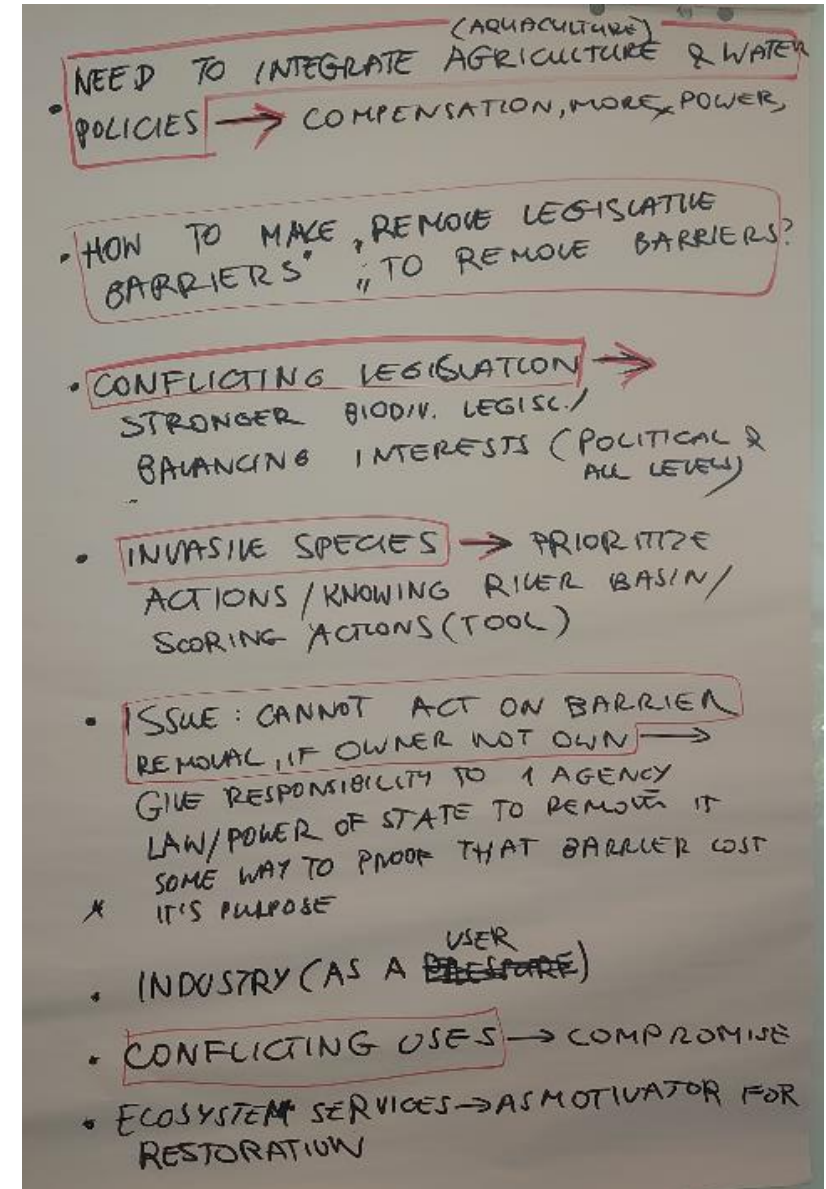 (AQUACULTURE)
• NEED TO INTEGRATE AGRICULTURE & WATER
POLICIES → COMPENSATION, MORE POWER,
• HOW TO MAKE "REMOVE LEGISLATIVE
BARRIERS" "TO REMOVE BARRIERS?
• CONFLICTING LEGISLATION →
STRONGER BIODIV. LEGISL./
BALANCING INTERESTS (POLITICAL &
ALL LEVELS)
• INVASIVE SPECIES → PRIORITIZE
ACTIONS / KNOWING RIVER BASIN /
SCORING ACTIONS (TOOL)
• ISSUE: CANNOT ACT ON BARRIER
REMOVAL, IF OWNER NOT OWN →
GIVE RESPONSIBILITY TO 1 AGENCY
LAW/POWER OF STATE TO REMOVE IT
SOME WAY TO PROOF THAT BARRIER LOST
* IT'S PURPOSE
USER
• INDUSTRY (AS A PRESSURE)
• CONFLICTING USES → COMPROMISE
• ECOSYSTEM SERVICES → AS MOTIVATOR FOR
RESTORATION